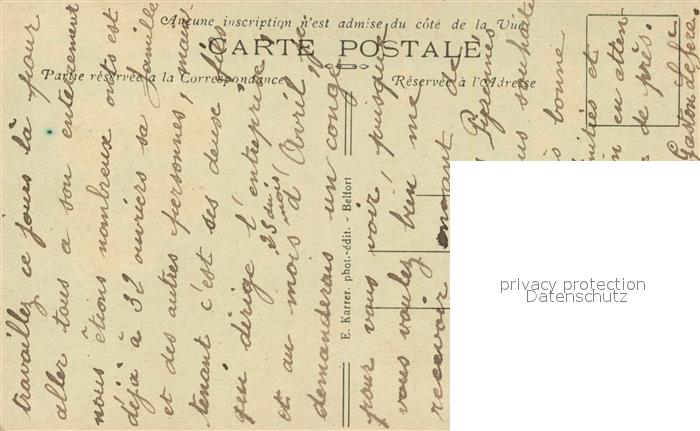 Aucune inscription n'est admise du côté de la Vue
CARTE POSTALE
Partie réservée à la Correspondance
Réservée à l'Adresse
E. Karrer, phot.-édit. - Belfort
travaillez ce jours là pour
aller tous a son enterrement
nous étions nombreux on est
déjà à 32 ouvriers sa famille
et des autres personnes, main-
tenant c'est ses deux fils
qui dirige l'entreprise,
et au mois d'Avril je
25 du mois
demanderais un congé
pour vous voir, puisque
vous voulez bien me
recevoir
Pyrénées
souhaite
bonne
et
en atten-
de près.
Gaston
privacy protection
Datenschutz